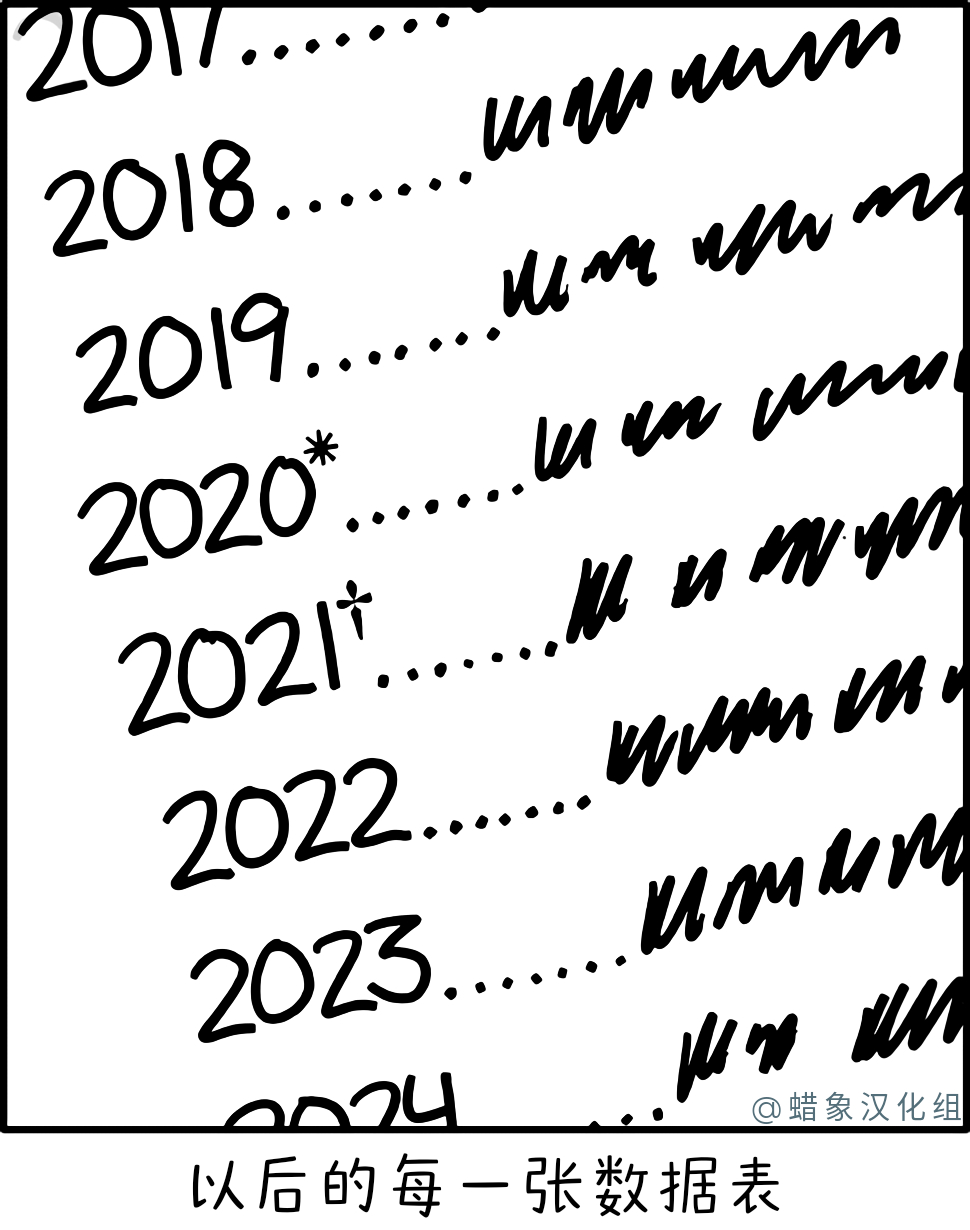 2017......
2018.......
2019.......
2020*.......
2021†.......
2022.......
2023.......
2024
@蜡象汉化组
以后的每一张数据表